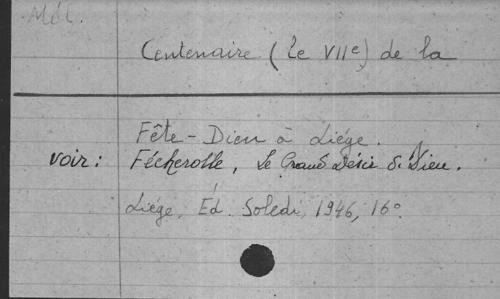 Mél.
Centenaire (Le VIIe) de la
Fête-Dieu à Liége.
voir: Fécherolle, Le Grand Désir de Dieu.
Liége, Éd. Soledi, 1946, 16°.